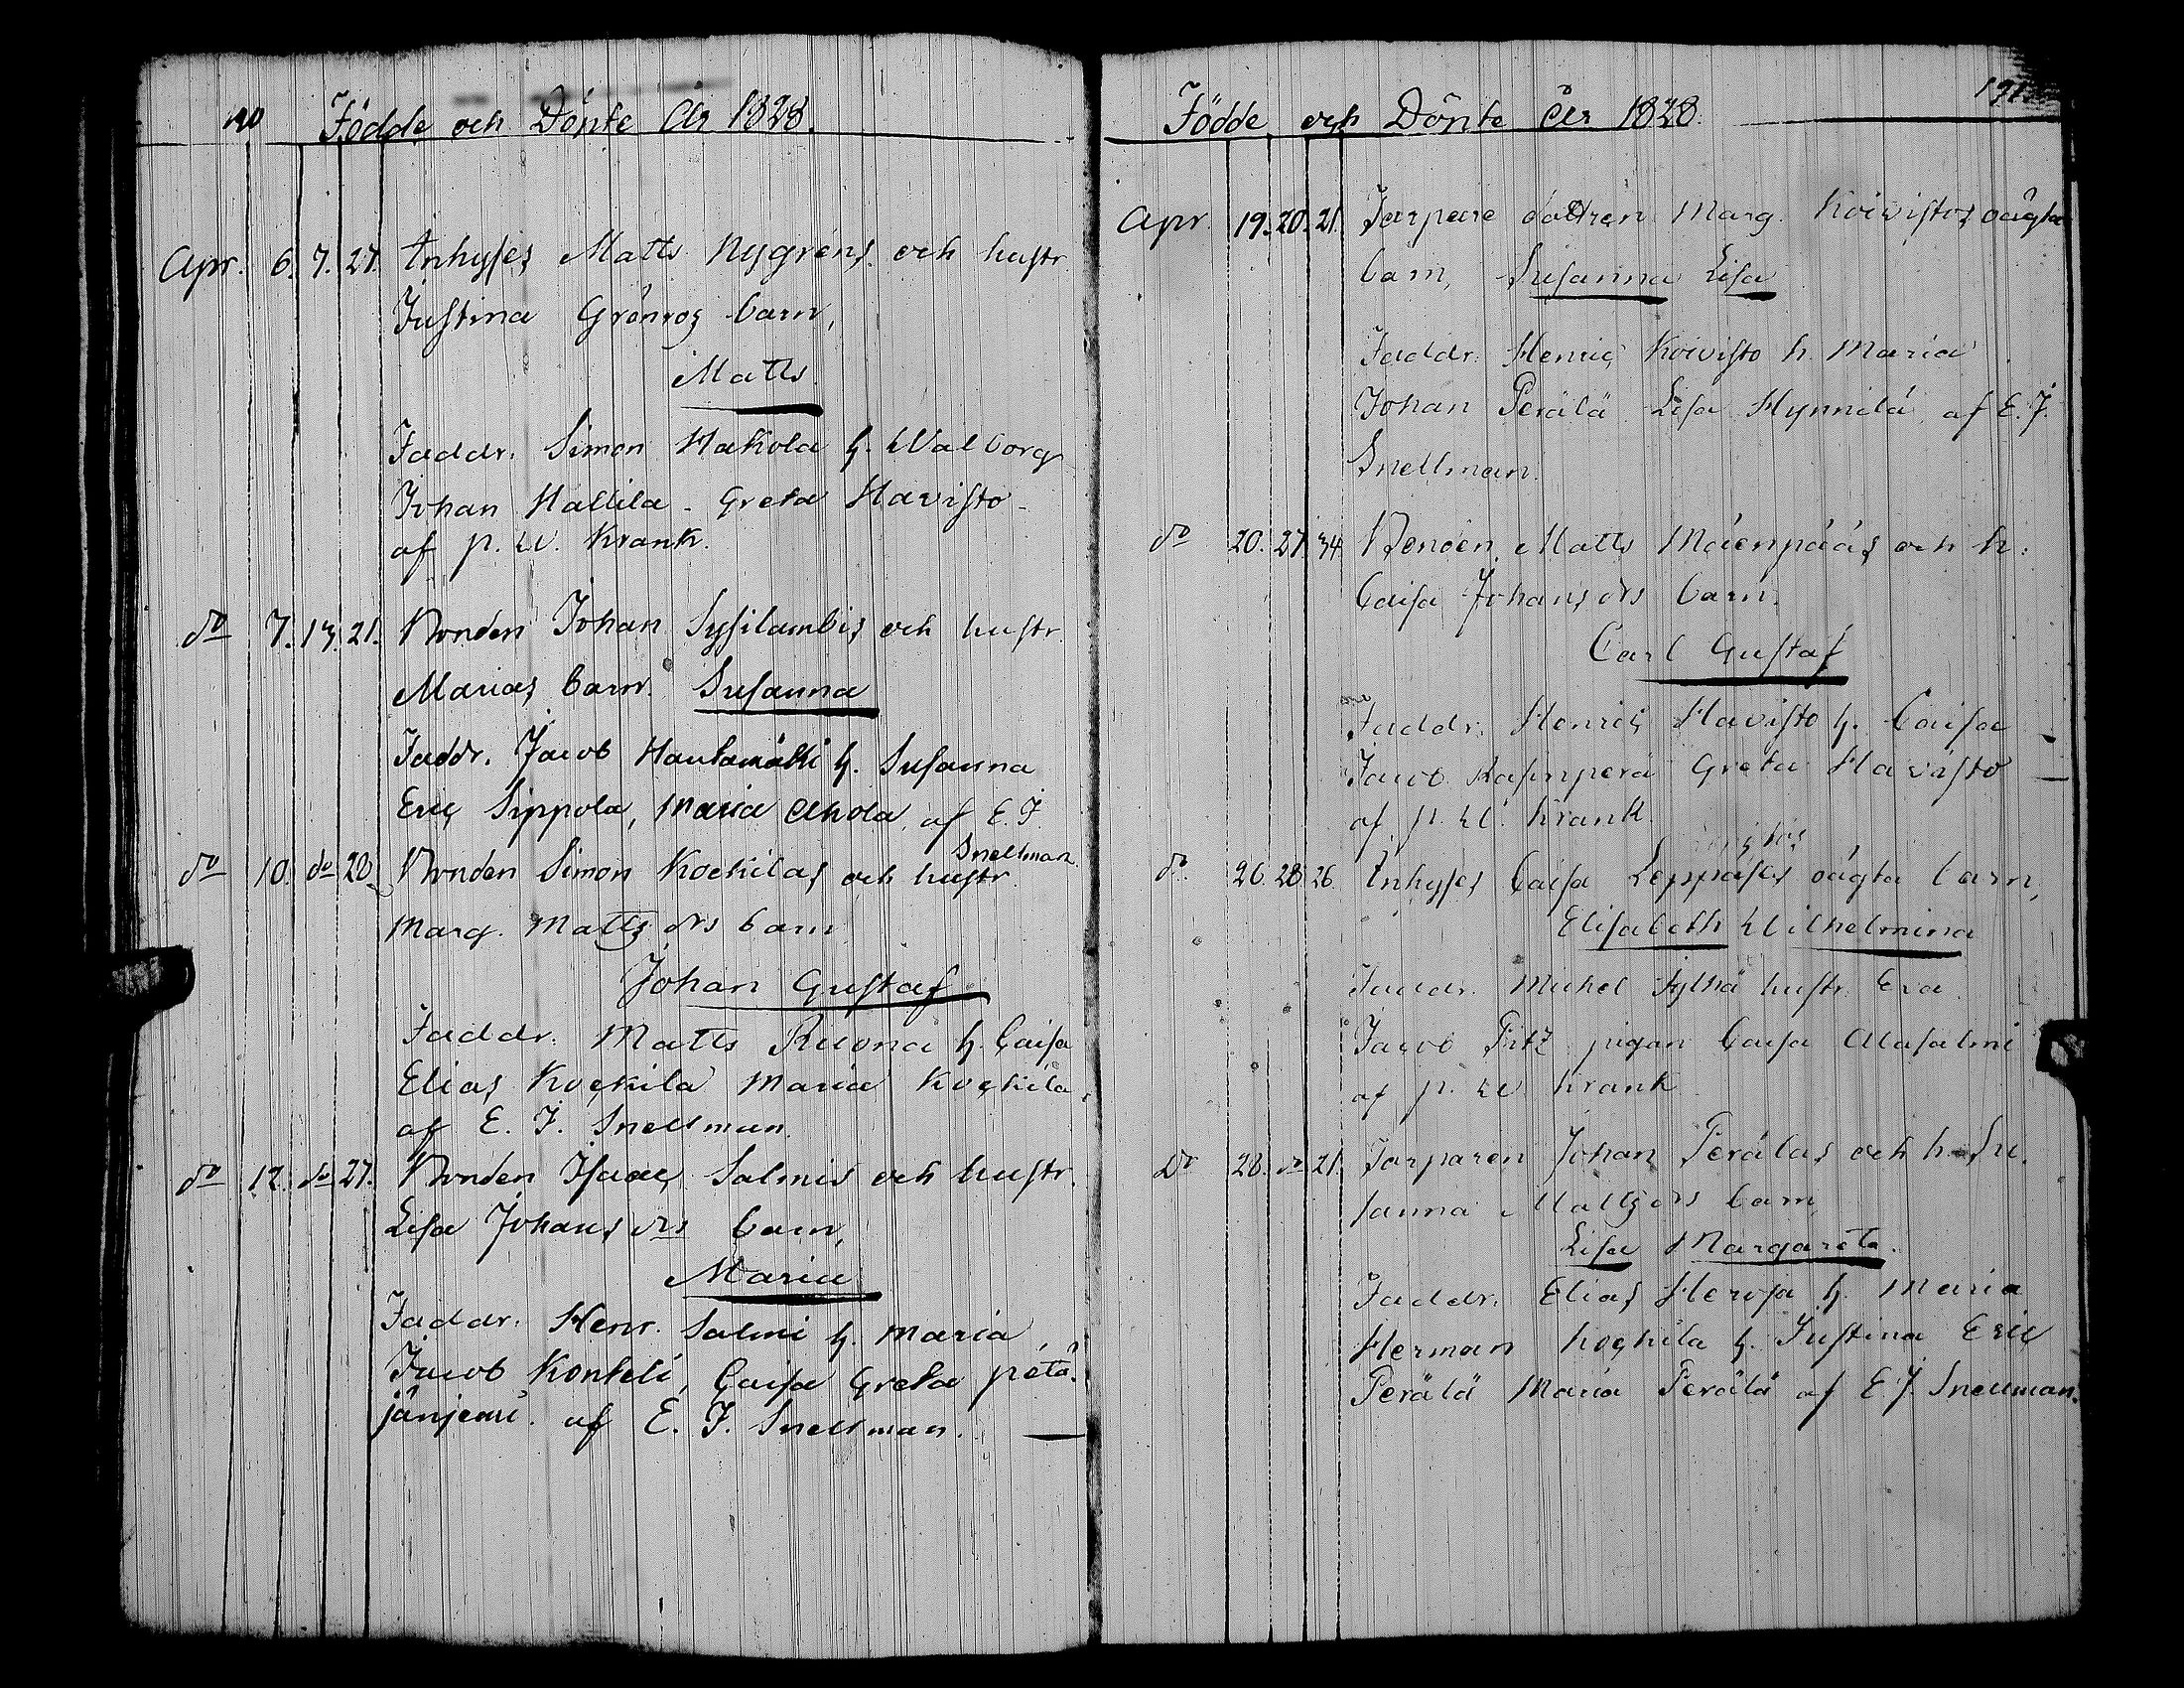 190 Födde och Döpte År 1828.
Apr. 6. 7. 27. Inhyses Matts Nygrens och hustr.
Justina Grönros barn,
Matts
Faddr. Simon Hakola h. Walborg
Johan Hallila - Greta Havisto -
af p. W. Krank.
do 7. 13. 21. Bonden Johan Sysilambis och hustr.
Marias barn. Susanna
Faddr. Jacob Hautamäki h. Susanna
Eric Sippola, Maria Ahola, af E. J.
Snellman.
do 10. do 28. Bonden Simon Kockilas och hustr.
Marg. Matts drs barn
Johan Gustaf
Faddr. Matts Ruona h. Caisa
Elias Kockila Maria Kockila,
af E. J. Snellman.
do 12. do 27. Bonden Isaac Salmis och hustr.
Lisa Johans drs barn,
Maria
Faddr. Henr. Salmi h. Maria
Jacob Konteli, Caisa Greta petä-
jänjemi. af E. J. Snellman.
Födde och Döpte År 1828. 191
Apr. 19. 20. 21. Torpare dottren Marg. Koivistos oägta
barn, Susanna Lisa
Faddr. Henric Koivisto h. Maria
Johan Perälä Lisa Hynnilä, af E. J.
Snellman.
do 20. 27. 34. Bonden Matts Mäenpääs och h.
Caisa Johans drs barn.
Carl Gustaf
Faddr. Henric Havisto h. Caisa
Jacob Kasinperä Greta Havisto
af p. W. Krank.
do 26. 28. 26. Inhyses Caisa oägta barn,
Elisabeth Wilhelmina
Faddr. Michel hustr. Eva
Jacob Fitz pigan Caisa Alasalmi
af p. W Krank
Do 28. do 21. Torparen Johan Perälas och h. Su-
sanna Matts drs barn,
Lisa Margareta.
Faddr. Elias Herosa h. Maria
Herman Kockila h. Justina Eric
Perälä Maria Perälä af E J. Snellman.